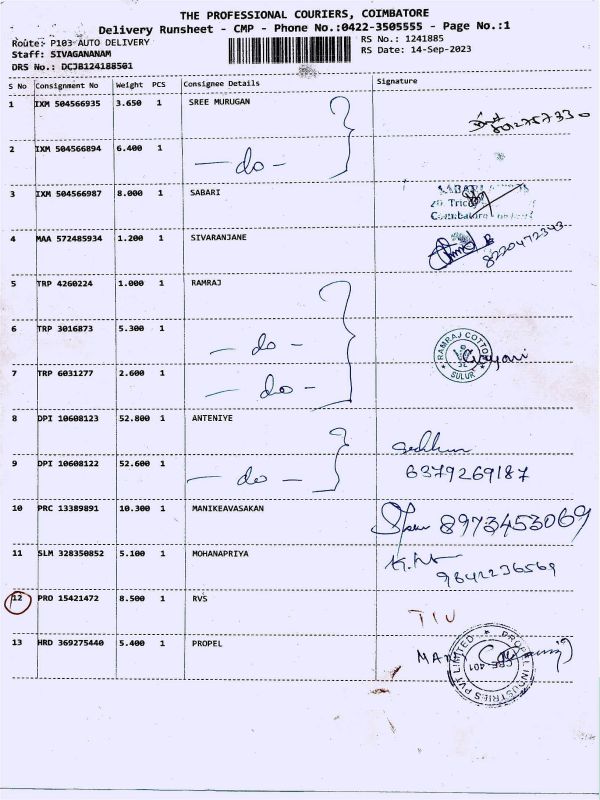 THE PROFESSIONAL COURIERS, COIMBATORE
Delivery Runsheet - CMP - Phone No.:0422-3505555 - Page No.:1
Route: P103 AUTO DELIVERY RS No.: 1241885
Staff: SIVAGANANAM RS Date: 14-Sep-2023
DRS No.: DCJB124188501
S No Consignment No Weight PCS Consignee Details Signature
1 IXM 504566935 3.650 1 SREE MURUGAN
2 IXM 504566894 6.400 1 — do —
3 IXM 504566987 8.000 1 SABARI
SABARI
Coimbatore
4 MAA 572485934 1.200 1 SIVARANJANE
8220472343
5 TRP 4260224 1.000 1 RAMRAJ
6 TRP 3016873 5.300 1 — do —
RAMRAJ COTTON
SULUR
7 TRP 6031277 2.600 1 — do —
8 DPI 10608123 52.800 1 ANTENIYE
9 DPI 10608122 52.600 1 — do — 6379269187
10 PRC 13389891 10.300 1 MANIKEAVASAKAN 8973453069
11 SLM 328350852 5.100 1 MOHANAPRIYA
9842236569
12 PRO 15421472 8.500 1 RVS
13 HRD 369275440 5.400 1 PROPEL
PROPEL INDUSTRIES PVT LIMITED
CBE-401